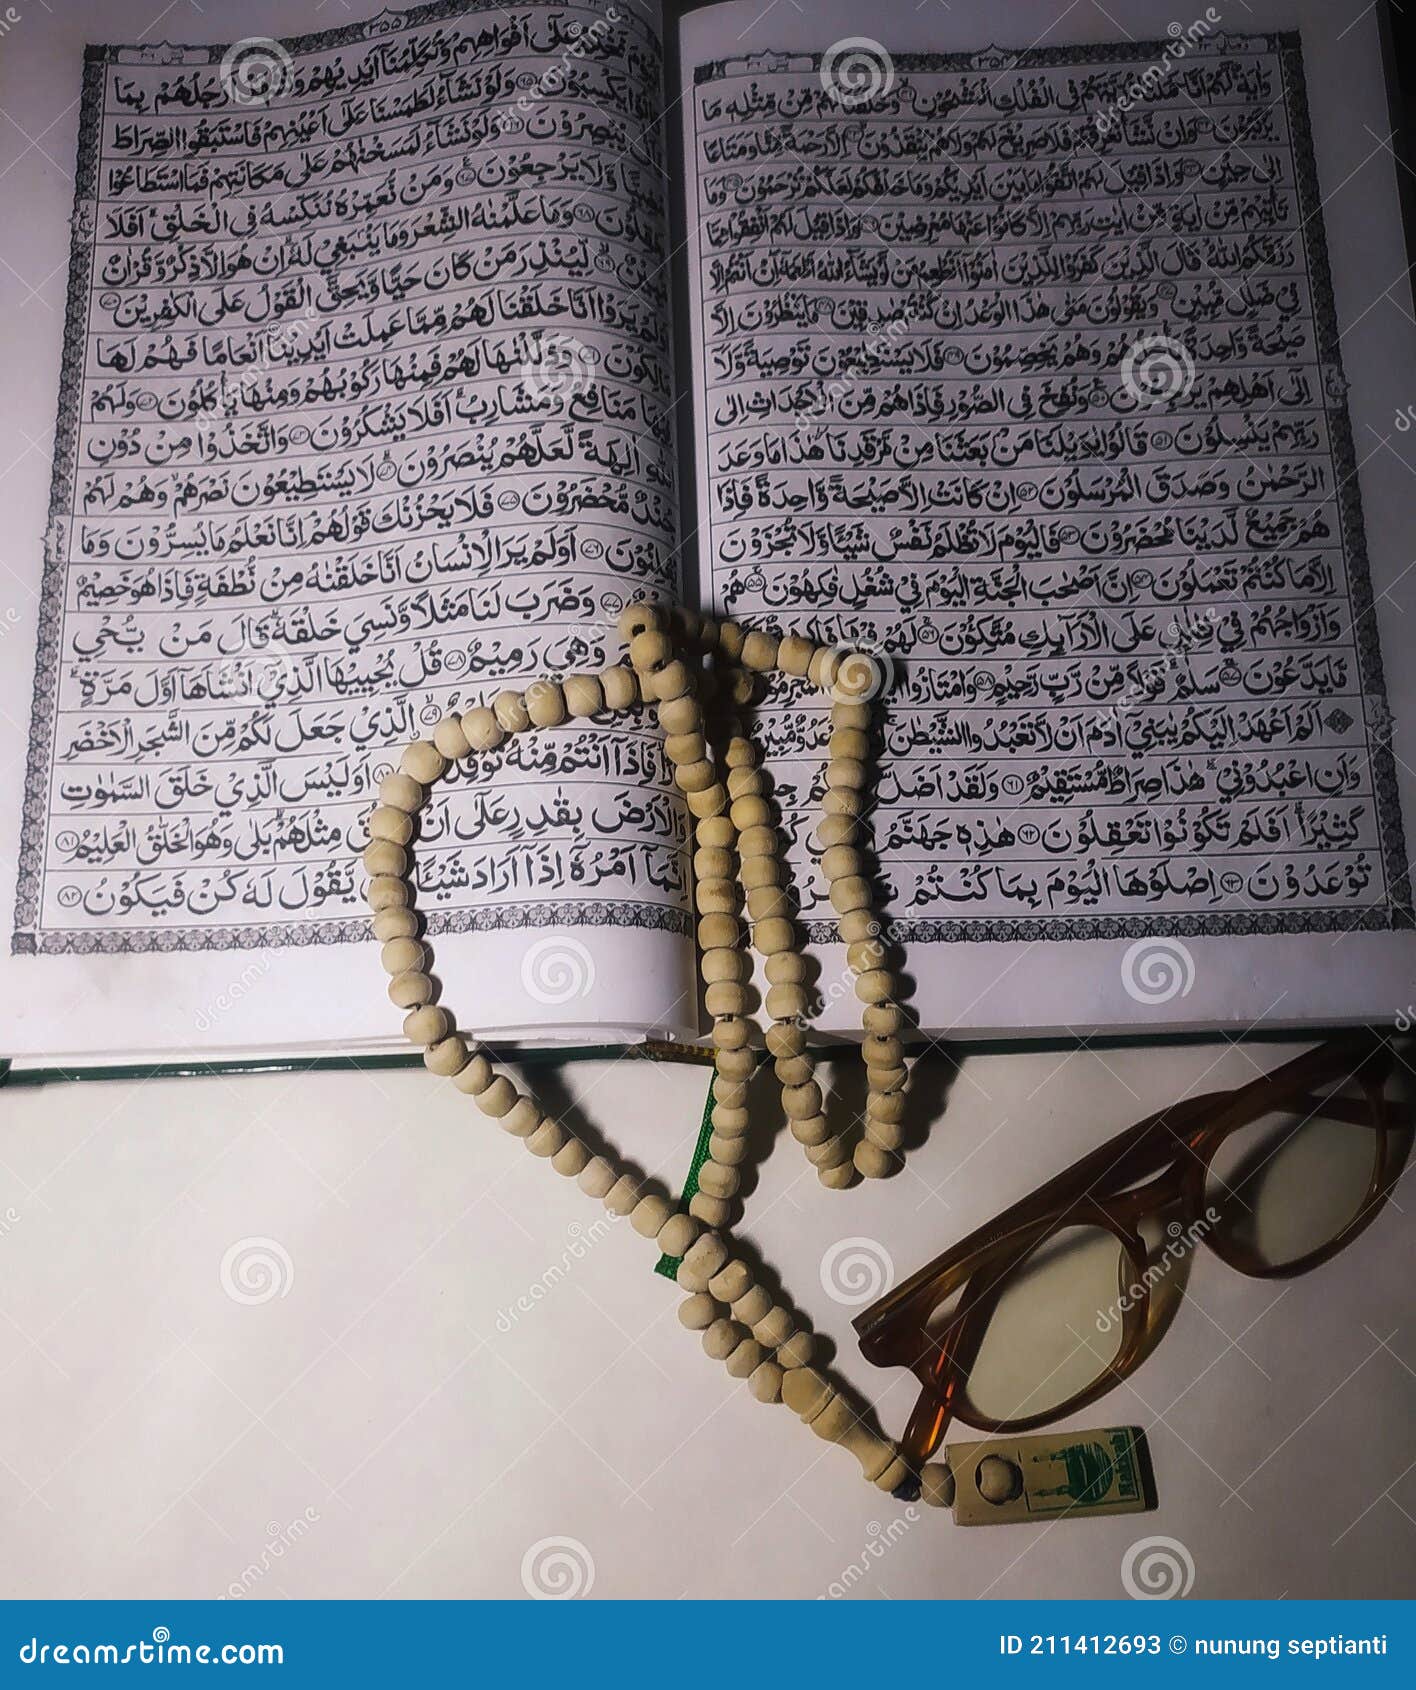 ۳۵۴
وَاٰيَةٌ لَّهُمْ اَنَّا حَمَلْنَا ذُرِّيَّتَهُمْ فِي الْفُلْكِ الْمَشْحُوْنِ ۴۱ وَخَلَقْنَا لَهُمْ مِّنْ مِّثْلِهٖ مَا
يَرْكَبُوْنَ ۴۲ وَاِنْ نَّشَأْ نُغْرِقْهُمْ فَلَا صَرِيْخَ لَهُمْ وَلَا هُمْ يُنْقَذُوْنَ ۴۳ اِلَّا رَحْمَةً مِّنَّا وَمَتَاعًا
اِلٰى حِيْنٍ ۴۴ وَاِذَا قِيْلَ لَهُمُ اتَّقُوْا مَا بَيْنَ اَيْدِيْكُمْ وَمَا خَلْفَكُمْ لَعَلَّكُمْ تُرْحَمُوْنَ ۴۵ وَمَا
تَأْتِيْهِمْ مِّنْ اٰيَةٍ مِّنْ اٰيٰتِ رَبِّهِمْ اِلَّا كَانُوْا عَنْهَا مُعْرِضِيْنَ ۴۶ وَاِذَا قِيْلَ لَهُمْ اَنْفِقُوْا مِمَّا
رَزَقَكُمُ اللّٰهُ قَالَ الَّذِيْنَ كَفَرُوْا لِلَّذِيْنَ اٰمَنُوْٓا اَنُطْعِمُ مَنْ لَّوْ يَشَآءُ اللّٰهُ اَطْعَمَهٗٓ اِنْ اَنْتُمْ اِلَّا
فِيْ ضَلٰلٍ مُّبِيْنٍ ۴۷ وَيَقُوْلُوْنَ مَتٰى هٰذَا الْوَعْدُ اِنْ كُنْتُمْ صٰدِقِيْنَ ۴۸ مَا يَنْظُرُوْنَ اِلَّا
صَيْحَةً وَّاحِدَةً تَأْخُذُهُمْ وَهُمْ يَخِصِّمُوْنَ ۴۹ فَلَا يَسْتَطِيْعُوْنَ تَوْصِيَةً وَّلَآ
اِلٰٓى اَهْلِهِمْ يَرْجِعُوْنَ ۵۰ وَنُفِخَ فِي الصُّوْرِ فَاِذَا هُمْ مِّنَ الْاَجْدَاثِ اِلٰى
رَبِّهِمْ يَنْسِلُوْنَ ۵۱ قَالُوْا يٰوَيْلَنَا مَنْۢ بَعَثَنَا مِنْ مَّرْقَدِنَا هٰذَا مَا وَعَدَ
الرَّحْمٰنُ وَصَدَقَ الْمُرْسَلُوْنَ ۵۲ اِنْ كَانَتْ اِلَّا صَيْحَةً وَّاحِدَةً فَاِذَا
هُمْ جَمِيْعٌ لَّدَيْنَا مُحْضَرُوْنَ ۵۳ فَالْيَوْمَ لَا تُظْلَمُ نَفْسٌ شَيْئًا وَّلَا تُجْزَوْنَ
اِلَّا مَا كُنْتُمْ تَعْمَلُوْنَ ۵۴ اِنَّ اَصْحٰبَ الْجَنَّةِ الْيَوْمَ فِيْ شُغُلٍ فٰكِهُوْنَ ۵۵ هُمْ
وَاَزْوَاجُهُمْ فِيْ ظِلٰلٍ عَلَى الْاَرَآئِكِ مُتَّكِئُوْنَ ۵۶ لَهُمْ فِيْهَا فَاكِهَةٌ
مَّا يَدَّعُوْنَ ۵۷ سَلٰمٌ قَوْلًا مِّنْ رَّبٍّ رَّحِيْمٍ ۵۸ وَامْتَازُوا
اَلَمْ اَعْهَدْ اِلَيْكُمْ يٰبَنِيْٓ اٰدَمَ اَنْ لَّا تَعْبُدُوا الشَّيْطٰنَ عَدُوٌّ مُّبِيْنٌ
وَّاَنِ اعْبُدُوْنِيْ هٰذَا صِرَاطٌ مُّسْتَقِيْمٌ ۶۱ وَلَقَدْ اَضَلَّ
كَثِيْرًا اَفَلَمْ تَكُوْنُوْا تَعْقِلُوْنَ ۶۲ هٰذِهٖ جَهَنَّمُ
تُوْعَدُوْنَ ۶۳ اِصْلَوْهَا الْيَوْمَ بِمَا كُنْتُمْ
۳۵۵
نَخْتِمُ عَلٰٓى اَفْوَاهِهِمْ وَتُكَلِّمُنَآ اَيْدِيْهِمْ وَتَشْهَدُ اَرْجُلُهُمْ بِمَا
يَكْسِبُوْنَ ۶۵ وَلَوْ نَشَآءُ لَطَمَسْنَا عَلٰٓى اَعْيُنِهِمْ فَاسْتَبَقُوا الصِّرَاطَ
يُبْصِرُوْنَ ۶۶ وَلَوْ نَشَآءُ لَمَسَخْنٰهُمْ عَلٰى مَكَانَتِهِمْ فَمَا اسْتَطَاعُوْا
وَّلَا يَرْجِعُوْنَ ۶۷ وَمَنْ نُّعَمِّرْهُ نُنَكِّسْهُ فِي الْخَلْقِ اَفَلَا
يَعْقِلُوْنَ ۶۸ وَمَا عَلَّمْنٰهُ الشِّعْرَ وَمَا يَنْۢبَغِيْ لَهٗ اِنْ هُوَ اِلَّا ذِكْرٌ وَّقُرْاٰنٌ
۶۹ لِّيُنْذِرَ مَنْ كَانَ حَيًّا وَّيَحِقَّ الْقَوْلُ عَلَى الْكٰفِرِيْنَ ۷۰
يَرَوْا اَنَّا خَلَقْنَا لَهُمْ مِّمَّا عَمِلَتْ اَيْدِيْنَآ اَنْعَامًا فَهُمْ لَهَا
مٰلِكُوْنَ ۷۱ وَذَلَّلْنٰهَا لَهُمْ فَمِنْهَا رَكُوْبُهُمْ وَمِنْهَا يَأْكُلُوْنَ ۷۲ وَلَهُمْ
فِيْهَا مَنَافِعُ وَمَشَارِبُ اَفَلَا يَشْكُرُوْنَ ۷۳ وَاتَّخَذُوْا مِنْ دُوْنِ
اللّٰهِ اٰلِهَةً لَّعَلَّهُمْ يُنْصَرُوْنَ ۷۴ لَا يَسْتَطِيْعُوْنَ نَصْرَهُمْ وَهُمْ لَهُمْ
جُنْدٌ مُّحْضَرُوْنَ ۷۵ فَلَا يَحْزُنْكَ قَوْلُهُمْ اِنَّا نَعْلَمُ مَا يُسِرُّوْنَ وَمَا
يُعْلِنُوْنَ ۷۶ اَوَلَمْ يَرَ الْاِنْسَانُ اَنَّا خَلَقْنٰهُ مِنْ نُّطْفَةٍ فَاِذَا هُوَ خَصِيْمٌ
۷۷ وَضَرَبَ لَنَا مَثَلًا وَّنَسِيَ خَلْقَهٗ قَالَ مَنْ يُّحْيِ
وَهِيَ رَمِيْمٌ ۷۸ قُلْ يُحْيِيْهَا الَّذِيْٓ اَنْشَاَهَآ اَوَّلَ مَرَّةٍ
۷۹ الَّذِيْ جَعَلَ لَكُمْ مِّنَ الشَّجَرِ الْاَخْضَرِ
فَاِذَآ اَنْتُمْ مِّنْهُ تُوْقِدُوْنَ ۸۰ اَوَلَيْسَ الَّذِيْ خَلَقَ السَّمٰوٰتِ
وَالْاَرْضَ بِقٰدِرٍ عَلٰٓى اَنْ مِثْلَهُمْ بَلٰى وَهُوَ الْخَلّٰقُ الْعَلِيْمُ ۸۱
اِنَّمَآ اَمْرُهٗٓ اِذَآ اَرَادَ شَيْـًٔا يَّقُوْلَ لَهٗ كُنْ فَيَكُوْنُ ۸۲
dreamstime.com
ID 211412693 © nunung septianti